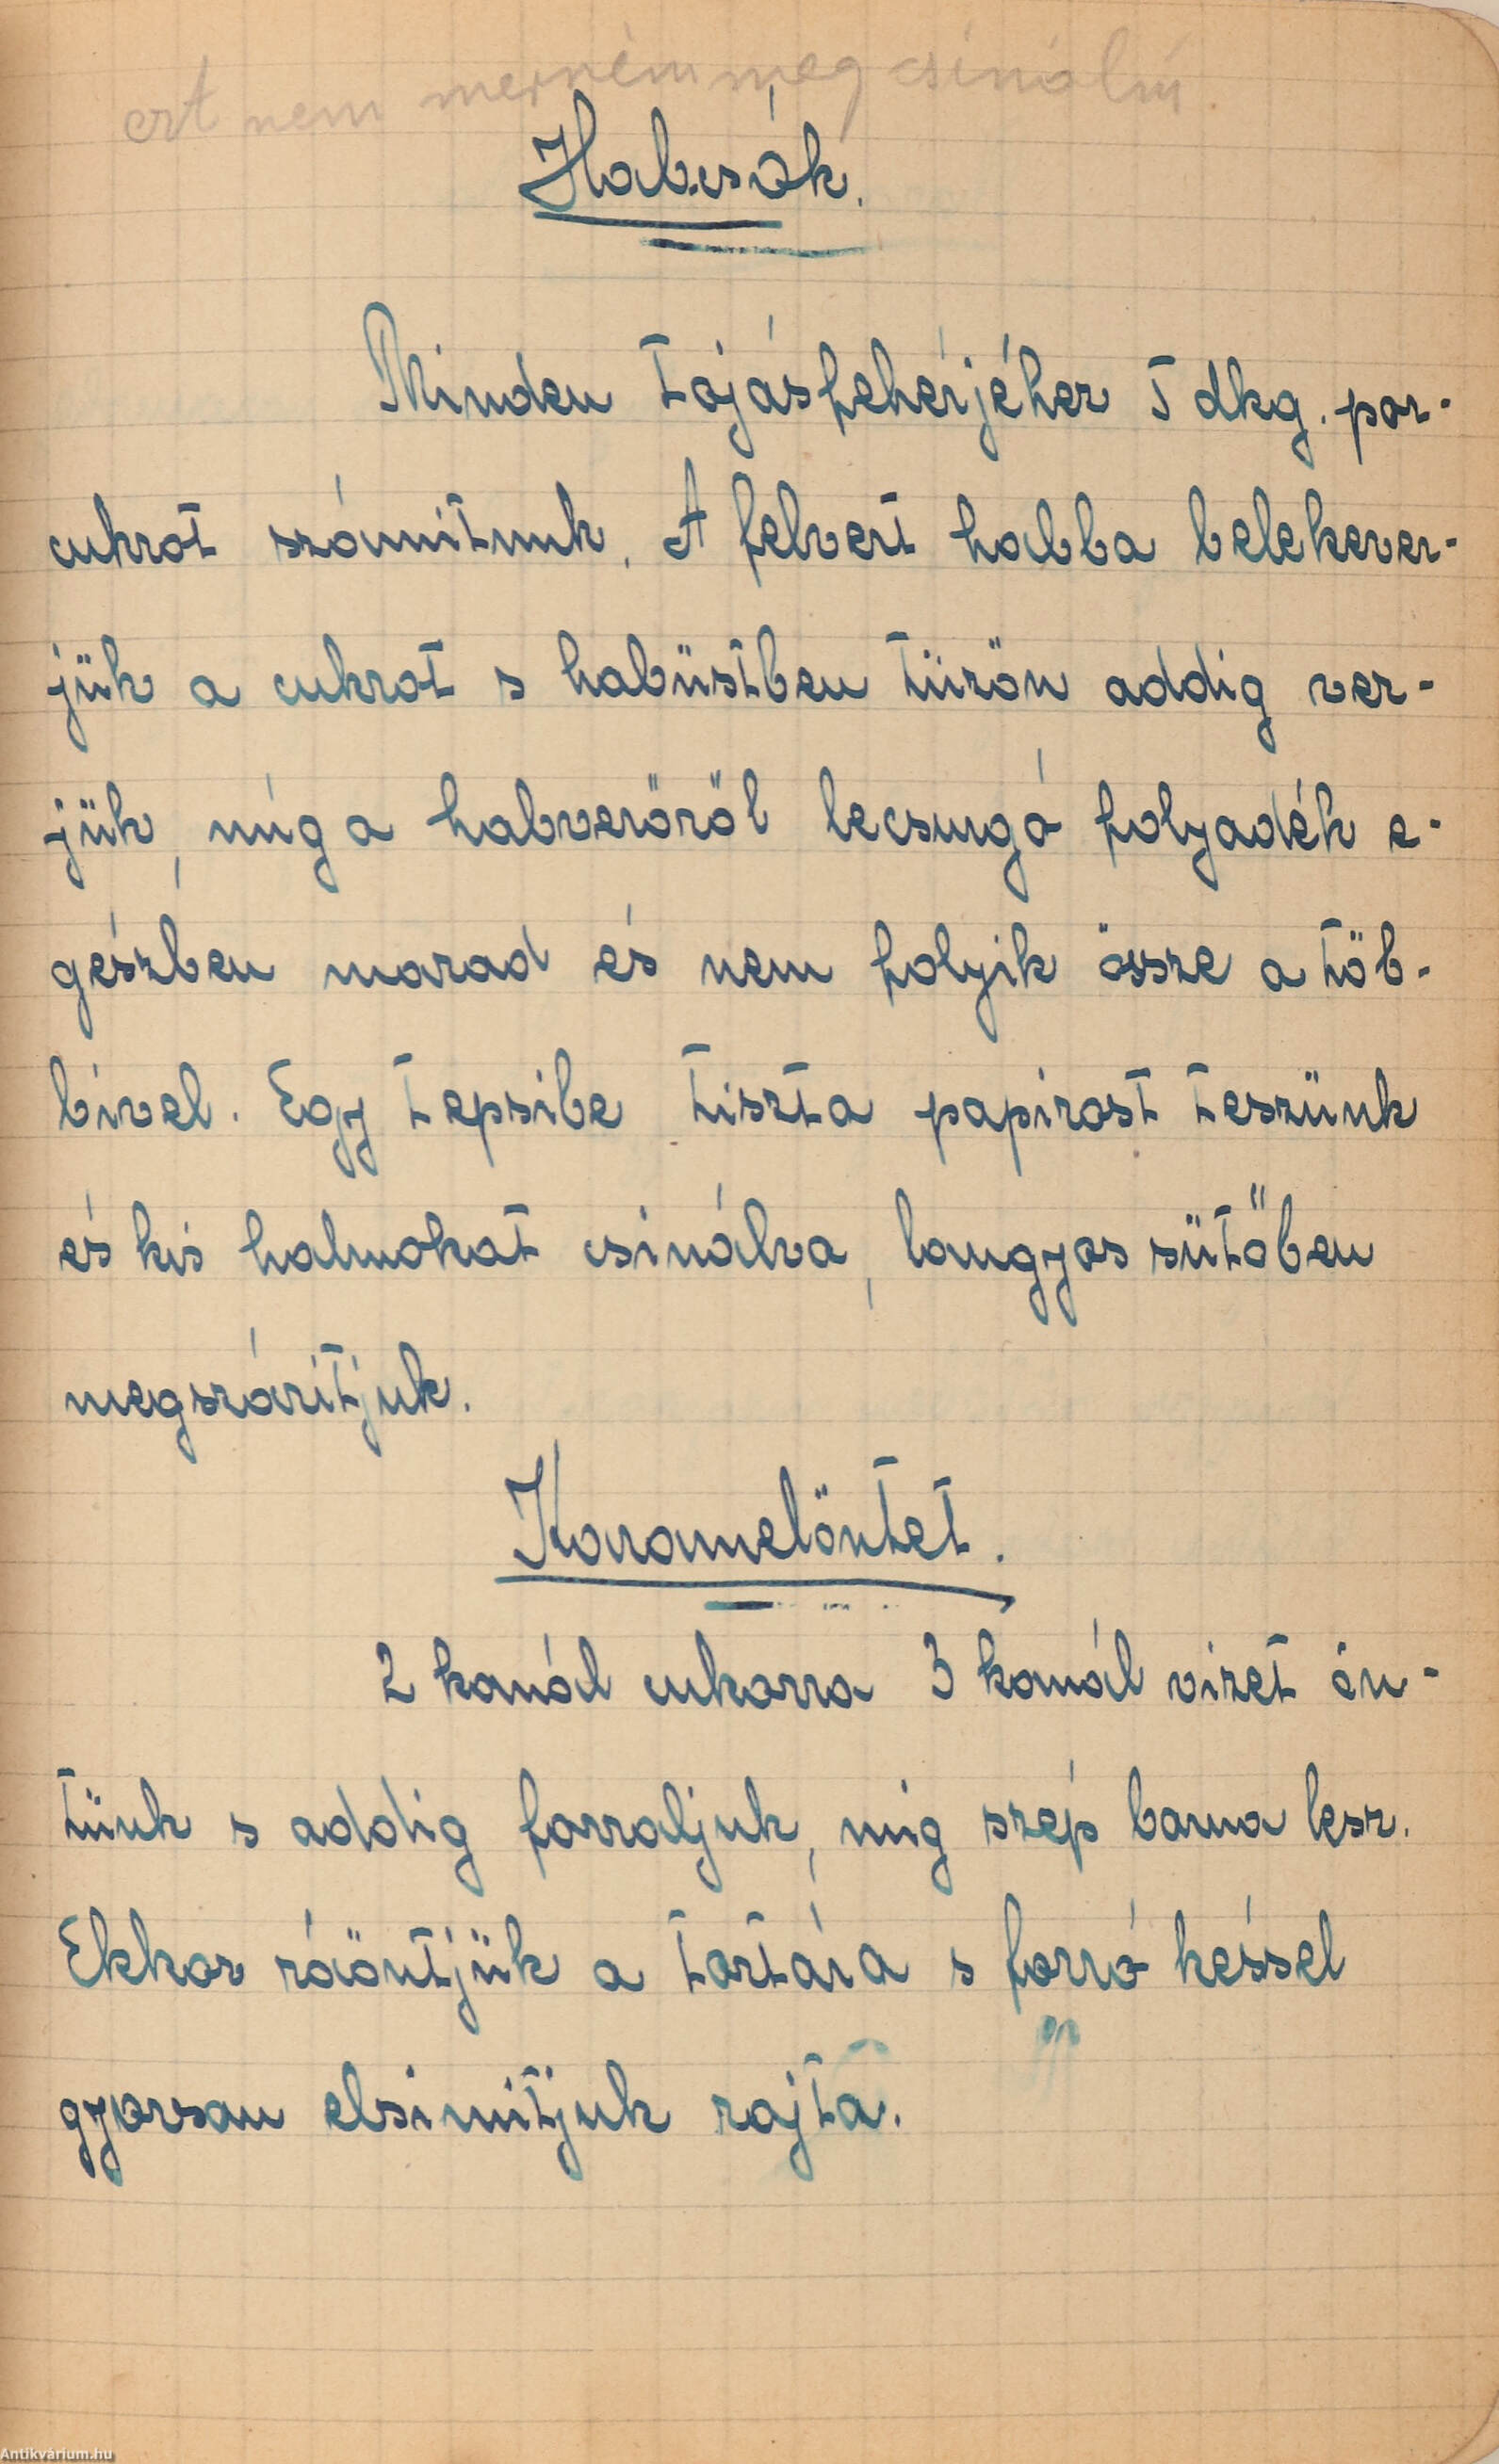 ezt nem merném meg csinálni.
Habcsók.
Minden tojásfehérjéhez 5 dkg. por-
cukrot számitunk. A felvert habba belekever-
jük a cukrot s habüstben tüzön addig ver-
jük, míg a habverőről lecsurgó folyadék e-
gészben marad és nem folyik össze a töb-
bivel. Egy tepsibe tiszta papirost teszünk
és kis halmokat csinálva, langyos sütőben
megszáritjuk.
Karamelöntet.
2 kanál cukorra 3 kanál vizet ön-
tünk s addig forraljuk, mig szép barna lesz.
Ekkor ráöntjük a tortára s forró késsel
gyorsan elsimitjuk rajta.
Antikvárium.hu